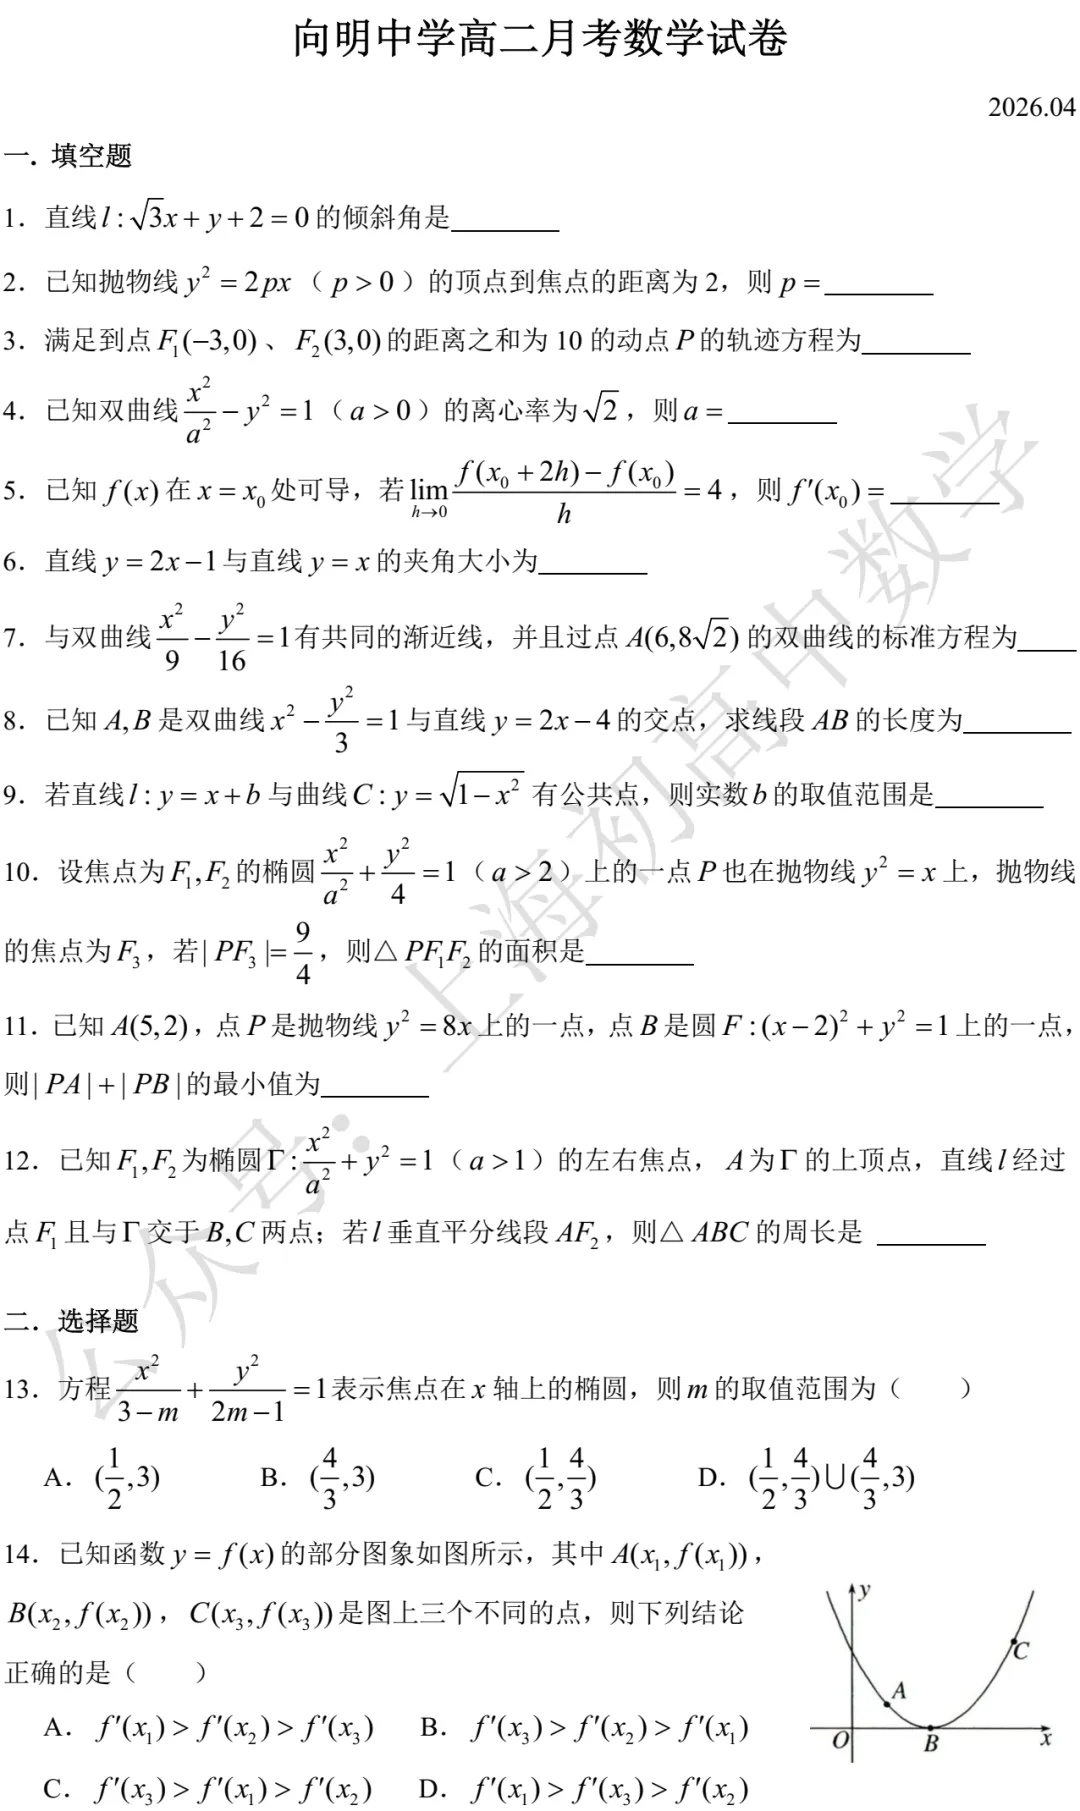 向明中学高二月考数学试卷
2026.04
一. 填空题
1. 直线 $l:\sqrt{3}x+y+2=0$ 的倾斜角是________
2. 已知抛物线 $y^2=2px$（$p>0$）的顶点到焦点的距离为 2，则 $p=$________
3. 满足到点 $F_1(-3,0)$、$F_2(3,0)$ 的距离之和为 10 的动点 $P$ 的轨迹方程为________
4. 已知双曲线 $\frac{x^2}{a^2}-y^2=1$（$a>0$）的离心率为 $\sqrt{2}$，则 $a=$________
5. 已知 $f(x)$ 在 $x=x_0$ 处可导，若 $\lim_{h\to 0}\frac{f(x_0+2h)-f(x_0)}{h}=4$，则 $f'(x_0)=$________
6. 直线 $y=2x-1$ 与直线 $y=x$ 的夹角大小为________
7. 与双曲线 $\frac{x^2}{9}-\frac{y^2}{16}=1$ 有共同的渐近线，并且过点 $A(6,8\sqrt{2})$ 的双曲线的标准方程为____
8. 已知 $A,B$ 是双曲线 $x^2-\frac{y^2}{3}=1$ 与直线 $y=2x-4$ 的交点，求线段 $AB$ 的长度为________
9. 若直线 $l:y=x+b$ 与曲线 $C:y=\sqrt{1-x^2}$ 有公共点，则实数 $b$ 的取值范围是________
10. 设焦点为 $F_1,F_2$ 的椭圆 $\frac{x^2}{a^2}+\frac{y^2}{4}=1$（$a>2$）上的一点 $P$ 也在抛物线 $y^2=x$ 上，抛物线
的焦点为 $F_3$，若 $|PF_3|=\frac{9}{4}$，则△$PF_1F_2$ 的面积是________
11. 已知 $A(5,2)$，点 $P$ 是抛物线 $y^2=8x$ 上的一点，点 $B$ 是圆 $F:(x-2)^2+y^2=1$ 上的一点，
则 $|PA|+|PB|$ 的最小值为________
12. 已知 $F_1,F_2$ 为椭圆 $\Gamma:\frac{x^2}{a^2}+y^2=1$（$a>1$）的左右焦点，$A$ 为 $\Gamma$ 的上顶点，直线 $l$ 经过
点 $F_1$ 且与 $\Gamma$ 交于 $B,C$ 两点；若 $l$ 垂直平分线段 $AF_2$，则△$ABC$ 的周长是 ________
二. 选择题
13. 方程 $\frac{x^2}{3-m}+\frac{y^2}{2m-1}=1$ 表示焦点在 $x$ 轴上的椭圆，则 $m$ 的取值范围为（　　）
A. $(\frac{1}{2},3)$ B. $(\frac{4}{3},3)$ C. $(\frac{1}{2},\frac{4}{3})$ D. $(\frac{1}{2},\frac{4}{3})\cup(\frac{4}{3},3)$
14. 已知函数 $y=f(x)$ 的部分图象如图所示，其中 $A(x_1,f(x_1))$，
$B(x_2,f(x_2))$，$C(x_3,f(x_3))$ 是图上三个不同的点，则下列结论
正确的是（　　）
A. $f'(x_1)>f'(x_2)>f'(x_3)$ B. $f'(x_3)>f'(x_2)>f'(x_1)$
C. $f'(x_3)>f'(x_1)>f'(x_2)$ D. $f'(x_1)>f'(x_3)>f'(x_2)$
y
C
A
O
B
x
公众号：上海初高中数学